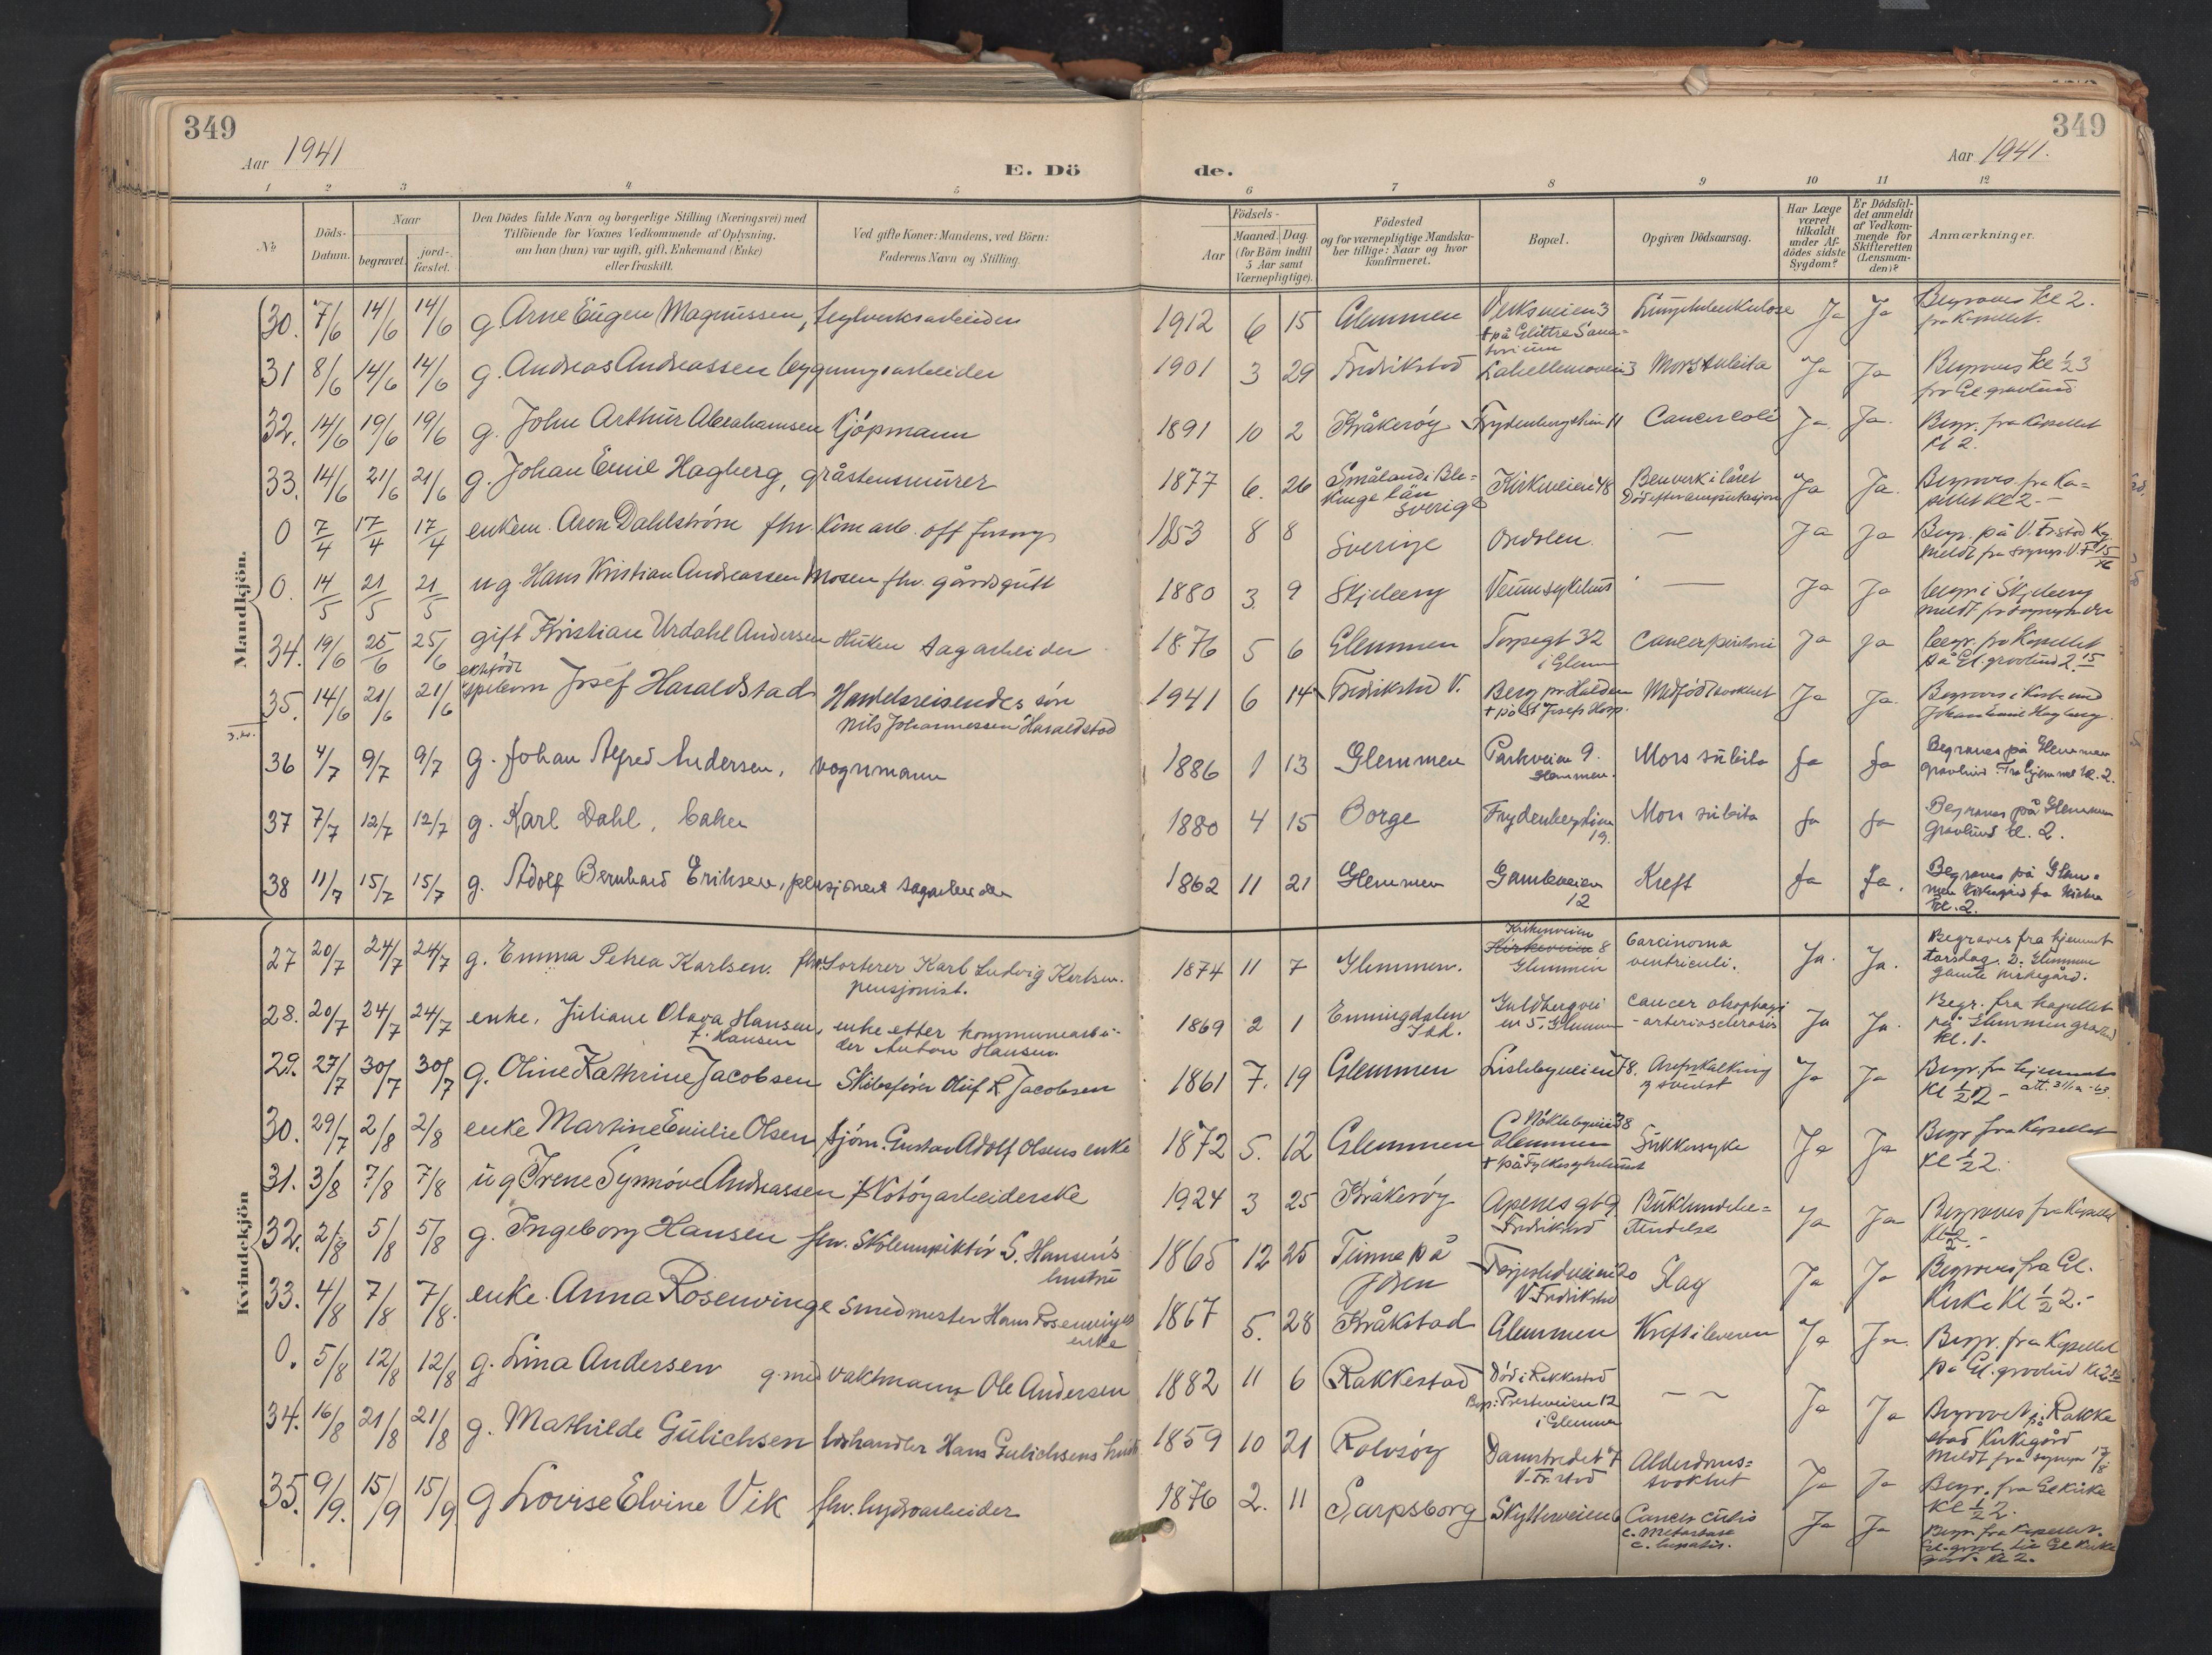 349
Aar 1941
E. Dö
de.
349
Aar 1941.
1 2 3 4 5 6 7 8 9 10 11 12
No
Döds-
Datum.
Naar
begravet.
jord-
fæstet.
Den Dödes fulde Navn og borgerlige Stilling (Næringsvei) med
Tilföiende for Voxnes Vedkommende af Oplysning,
om han (hun) var ugift, gift, Enkemand (Enke)
eller fraskilt.
Ved gifte Koner: Mandens, ved Börn:
Faderens Navn og Stilling.
Födsels-
Aar
Maaned. Dag.
(for Börn indtil
5 Aar samt
Værnepligtige).
Födested
og for værnepligtige Mandska-
ber tillige: Naar og hvor
konfirmeret.
Bopæl.
Opgiven Dödsaarsag.
Har Læge
været
tilkaldt
under Af-
dödes sidste
Sygdom?
Er Dödsfal-
det anmeldt
af Vedkom-
mende for
Skifteretten
(Lensman-
den)?
Anmærkninger.
Mandkjön.
30. 7/6 14/6 14/6 g. Arne Eugen Magnussen, teglverksarbeider 1912 6 15 Glemmen Verksveien 3
+ på Glittre Sana-
torium
Lungetuberkulose Ja Ja Begraves kl 2.
fra Kapellet.
31 8/6 14/6 14/6 g. Andreas Andreassen bygningsarbeider 1901 3 29 Fredrikstad Mors subita Ja Ja Begraves kl ½3
fra Gl. gravlund
32. 14/6 19/6 19/6 g. John Arthur Abrahamsen Kjöpmann 1891 10 2 Kråkeröy Frydenbergstien 11 Cancer coli Ja. Ja. Begr. fra Kapellet
kl 2.
33. 14/6 21/6 21/6 g. Johan Emil Hagberg, gråstensmurer 1877 6. 26 Småland i Ble-
kinge län
Sverige
Kirkeveien 48 Benverk i låret
Död efter amputasjon
Ja Ja. Begraves fra Ka-
pellet kl 2.-
0 7/4 17/4 17/4 enkem. Aron Dahlström fhv. kom arb. off forsorg 1853 8 8 Sverige Ordalen. — Ja Ja Begr. på V. Fr.stad Kg.
meldt fra sognepr. V.F. 15/
0. 14/5 21/5 21/5 ug. Hans Kristian Andreassen Mosen fhv. gårdsgutt 1880 3. 9 Skjeberg Veum sykehus — Ja Ja begr i Skjeberg
meldt fra sogneprden
34. 19/6 25/6 25/6 gift Kristian Urdahl Andersen Huken sagarbeider 1876 5 6 Glemmen Torpegt 32
i Glem
Cancer peritonei Ja Ja begr. fra Kapellet
på Gl. gravlund 2.15
35. 14/6 21/6 21/6 ektefödt
spebarn Josef Haraldstad Handelsreisendes sön
Nils Johannessen Haraldstad
1941 6 14 Fredrikstad V. Berg pr Halden
+ på St Josefs Hosp.
Medfödt svakhet Ja Ja. Begraves i Kiste med
Johan Emil Hagberg.
36 4/7 9/7 9/7 g. Johan Alfred Andersen, vognmann 1886 1 13 Glemmen Parkveien 9.
Glemmen.
Mors subita Ja Ja Begraves på Glemmen
gravlund. Fra hjemmet kl. 2.
37 7/7 12/7 12/7 g. Karl Dahl, baker 1880 4 15 Borge Frydenbergstien
19.
Mors subita Ja Ja Begraves på Glemmen
Gravlund kl. 2.
38 11/7 15/7 15/7 g. Adolf Bernhard Eriksen, pensjonert sagarbeider 1862 11 21 Glemmen Gamleveien
12
Kreft Ja Ja. Begraves på Glem-
men Kirkegård fra Kirken
kl. 2.
Kvindekjön
27 20/7 24/7 24/7 g. Emma Petrea Karlsen. fhv. Sorterer Karl Ludvig Karlsen.
pensjonist.
1874 11 7 Glemmen. Kirkeveien
8
Glemmen
Carcinoma
ventriculi.
Ja. Ja. Begraves fra hjemmet
torsdag. 2. Glemmen
gamle kirkegård.
28. 20/7 24/7 24/7 enke, Juliane Olava Hansen,
f. Hansen
enke etter kommunearbei-
der Anton Hansen.
1869 2 1 Enningdalen
Idd.
Guldbergvei
en 5. Glemmen
Cancer oesophagi
- arteriosclerosis
Ja Ja. Begr. fra kapellet
på Glemmen gravlund
kl. 1.
29. 27/7 30/7 30/7 g. Oline Kathrine Jacobsen Skibsförer Oluf R Jacobsen 1861 7. 19 Glemmen Lislebyveien 78. Areforkalkning
Ja Ja Begr. fra hjemmet
kl ½2 -
30. 29/7 2/8 2/8 enke Martine Emilie Olsen sjöm. Gustav Adolf Olsens enke 1872 5. 12 Glemmen Nöklebyveien 38
Glemmen
+ på Fylkessykehuset
Sukkersyke Ja Ja Begr. fra Kapellet
kl ½2.
31. 3/8 7/8 7/8 ug Irene Synnöve Andreassen skotöyarbeiderske 1924 3 25 Kråkeröy Apenesgt 9
Fredrikstad
Bukhindebe-
tendelse
Ja Ja Begraves fra Kapellet
32. 2/8 5/8 5/8 g. Ingeborg Hansen fhv. Skoleinspektör S. Hansens
hustru
1865 12 25 Tunna på
Torjestadveien 20
V. Fredrikstad
Slag Ja Ja Begraves fra Gl.
Kirke kl ½2.-
33. 4/8 7/8 7/8. enke Anna Rosenvinge Smedmester Hans Rosenvinges
enke
1867 5. 28 Kråkstad Glemmen Kreft i leveren Ja Ja. Begr. fra Kapellet
på Gl. gravlund
0. 5/8 12/8 12/8 g. Lina Andersen g. med vaktmann Ole Andersen 1882 11 6 Rakkestad Död i Rakkestad
Bop: Presteveien 12
i Glemmen
— ~ Ja Ja Begravet på Rakke
stad Kirkegård
Meldt fra sognepr 17/8
34. 16/8 21/8 21/8 g. Mathilde Gulichsen handler Hans Gulichsens hustru 1859 10 21 Rolvsöy Damstredet 7
V. Fr.stad
Alderdoms-
svakhet
Ja Ja Begr. fra Gl Kirke
kl ½2.
35. 9/9. 15/9 15/9. g Lovise Elvine Vik fhv. hydroarbeider 1876 2. 11 Sarpsborg Skytterveien 6 Cancer cutis
c. Metastase
c. hepatis.
Ja Ja Begr. fra Kapellet.